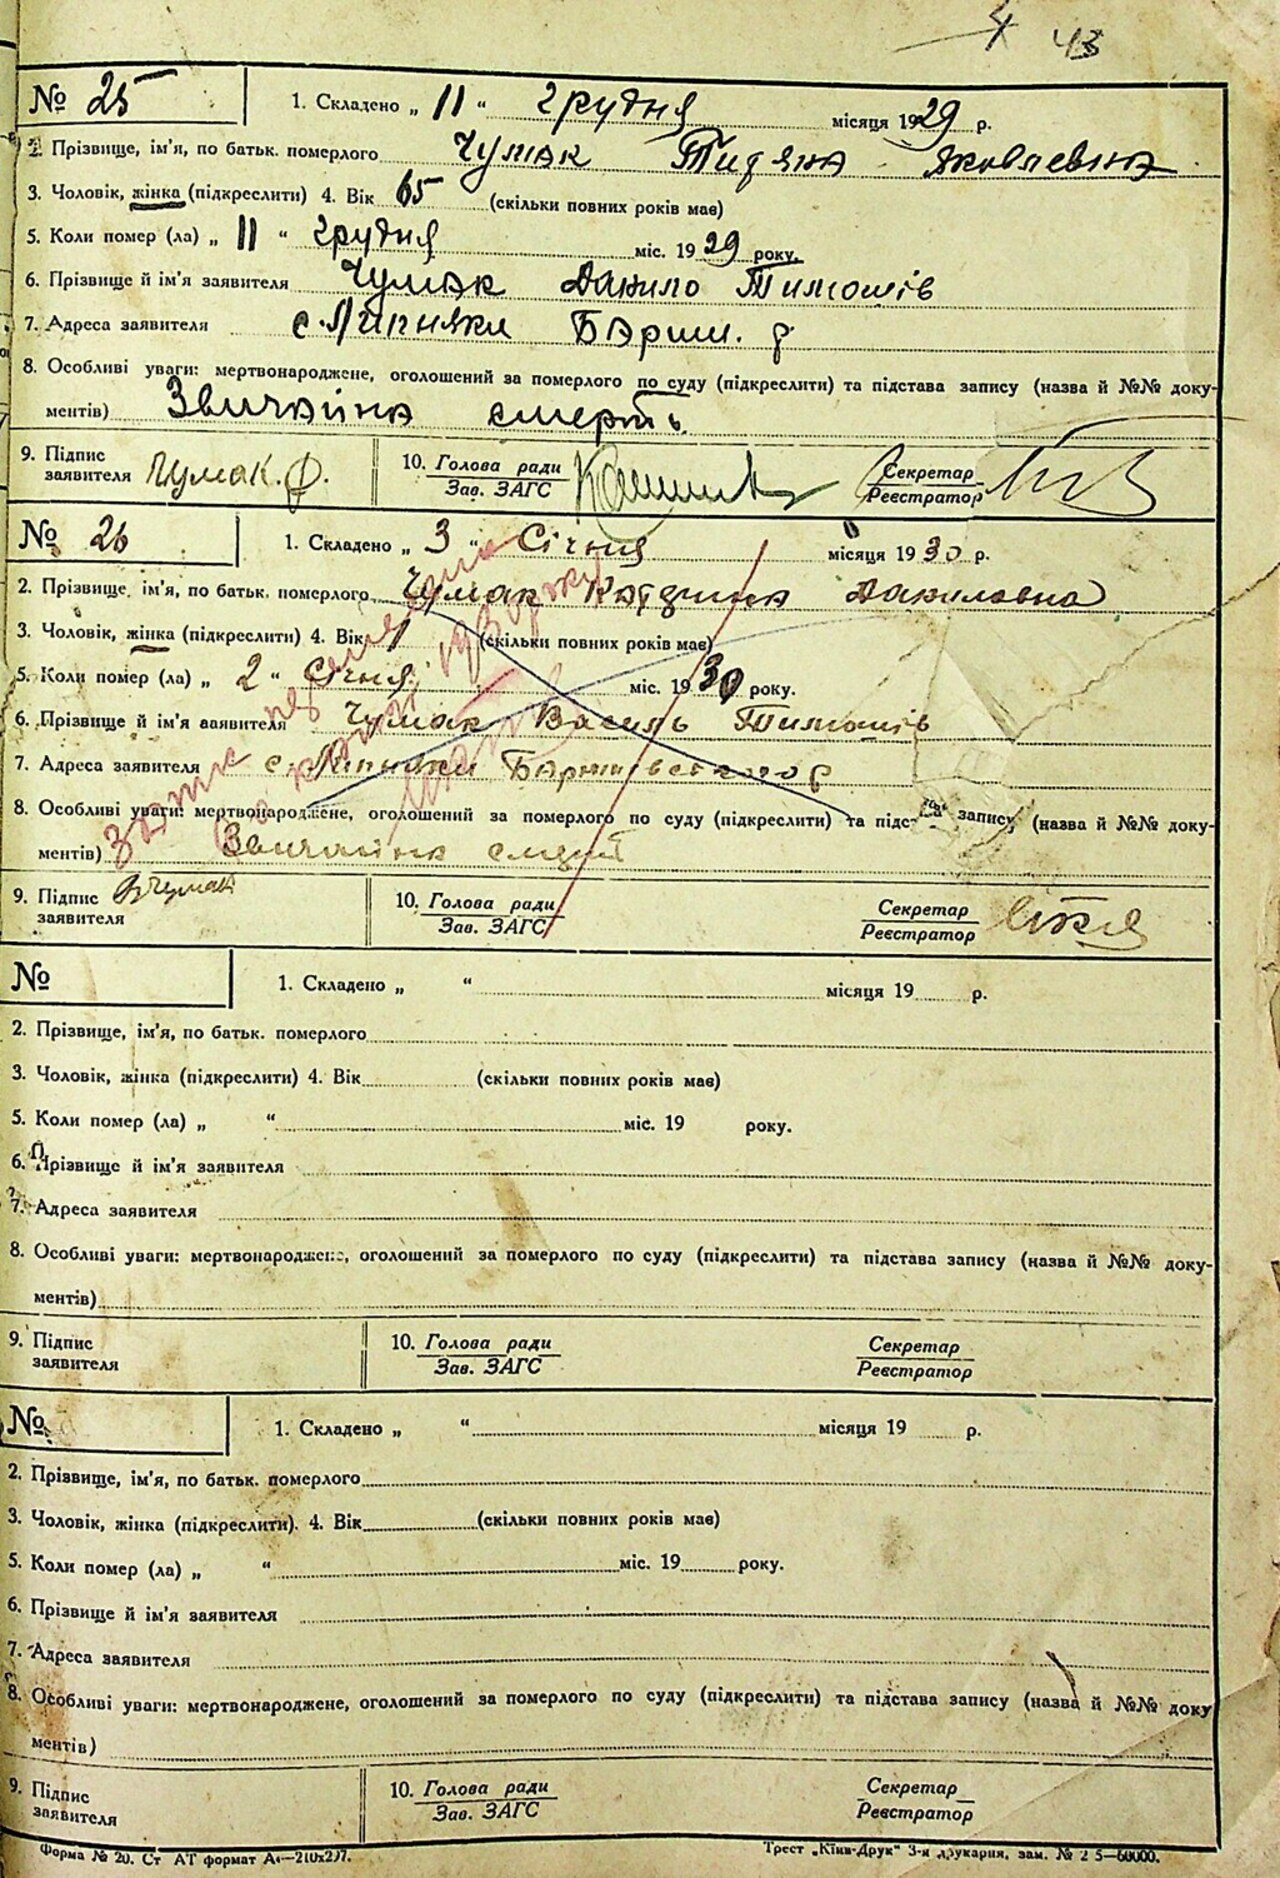 43
№ 25
1. Складено „ 11 “ грудня місяця 1929 р.
2. Прізвище, ім'я, по батьк. померлого Чумак Тидяна Яковлевна
3. Чоловік, жінка (підкреслити) 4. Вік 65 (скільки повних років має)
5. Коли помер (ла) „ 11 “ грудня міс. 1929 року.
6. Прізвище й ім'я заявителя Чумак Данило Тимошів
7. Адреса заявителя с. Липняки Барши. р.
8. Особливі уваги: мертвонароджене, оголошений за померлого по суду (підкреслити) та підстава запису (назва й №№ доку-
ментів) Звичайна смерть
9. Підпис заявителя Чумак. Ф.
10. Голова ради
Зав. ЗАГС
Секретар
Реєстратор
№ 26
1. Складено „ 3 “ Січня місяця 1930 р.
2. Прізвище, ім'я, по батьк. померлого Чумак Даниловна
3. Чоловік, жінка (підкреслити) 4. Вік 1 (скільки повних років має)
5. Коли помер (ла) „ 2 “ Січня міс. 1930 року.
6. Прізвище й ім'я заявителя Чумак Василь Тимошів
7. Адреса заявителя с. Липняки
8. Особливі уваги: мертвонароджене, оголошений за померлого по суду (підкреслити) та підс запису (назва й №№ доку-
ментів) Звичайна смерть
9. Підпис заявителя В Чумак
10. Голова ради
Зав. ЗАГС
Секретар
Реєстратор
№
1. Складено „ “ місяця 19 р.
2. Прізвище, ім'я, по батьк. померлого
3. Чоловік, жінка (підкреслити) 4. Вік (скільки повних років має)
5. Коли помер (ла) „ “ міс. 19 року.
6. Прізвище й ім'я заявителя
7. Адреса заявителя
8. Особливі уваги: мертвонароджене, оголошений за померлого по суду (підкреслити) та підстава запису (назва й №№ доку-
ментів)
9. Підпис заявителя
10. Голова ради
Зав. ЗАГС
Секретар
Реєстратор
№
1. Складено „ “ місяця 19 р.
2. Прізвище, ім'я, по батьк. померлого
3. Чоловік, жінка (підкреслити). 4. Вік (скільки повних років має)
5. Коли помер (ла) „ “ міс. 19 року.
6. Прізвище й ім'я заявителя
7. Адреса заявителя
8. Особливі уваги: мертвонароджене, оголошений за померлого по суду (підкреслити) та підстава запису (назва й №№ доку
ментів)
9. Підпис заявителя
10. Голова ради
Зав. ЗАГС
Секретар
Реєстратор
Форма № 20. Ст АТ формат А4—210x297.
Трест „Київ-Друк“ 3-я друкарня, зам. № 2 5—60000.